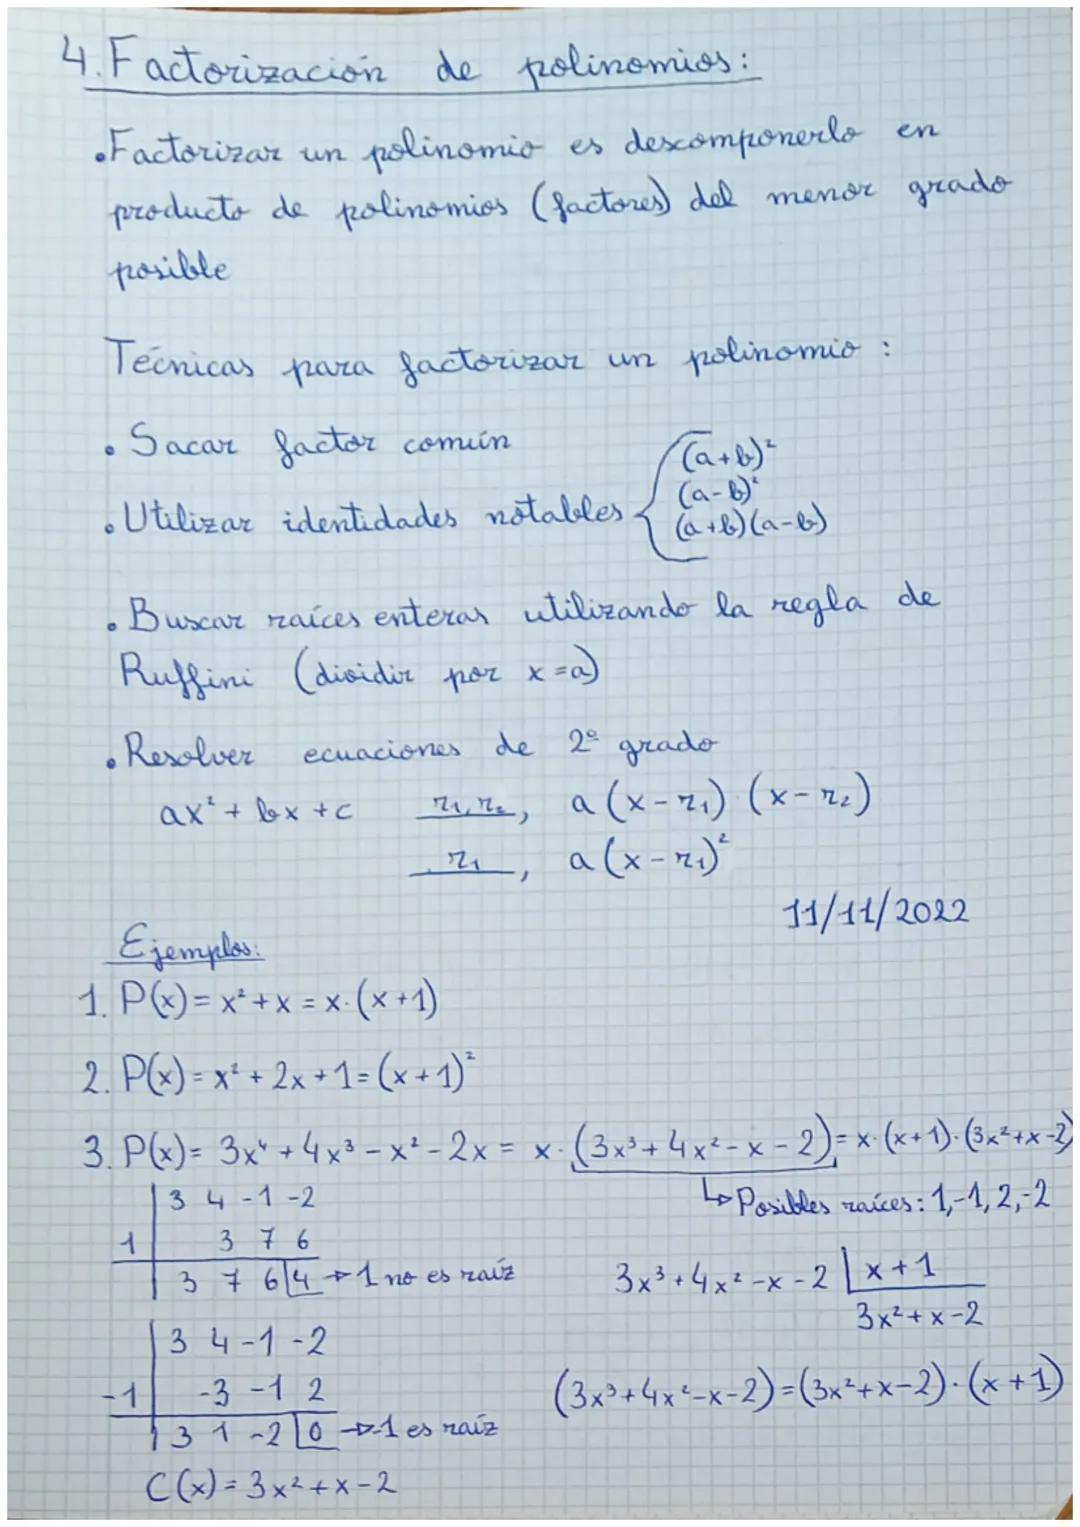 4. Factorización de polinomios:
• Factorizar un polinomio es descomponerlo en
producto de polinomios (factores) del menor grado
posible
Técnicas para factorizar un polinomio :
• Sacar factor común
• Utilizar identidades notables { (a+b)²
(a-b)²
(a+b)(a-b)
• Buscar raíces enteras utilizando la regla de
Ruffini (dividir por x=a)
• Resolver ecuaciones de 2º grado
ax² + bx + c r₁, r₂, a (x - r₁) · (x - r₂)
r₁, a (x - r₁)²
11/11/2022
Ejemplos:
1. P(x) = x² + x = x · (x+1)
2. P(x) = x² + 2x + 1 = (x+1)²
3. P(x) = 3x⁴ + 4x³ - x² - 2x = x · (3x³ + 4x² - x - 2) = x · (x+1) · (3x²+x-2)
↳ Posibles raíces: 1,-1, 2,-2
3 4 -1 -2
1 3 7 6
3 7 6 4 → 1 no es raíz
3x³ + 4x² - x - 2 | x + 1
3x² + x - 2
3 4 -1 -2
-1 -3 -1 2
3 1 -2 0 → -1 es raíz
(3x³+4x²-x-2) = (3x²+x-2) · (x+1)
C(x) = 3x² + x - 2